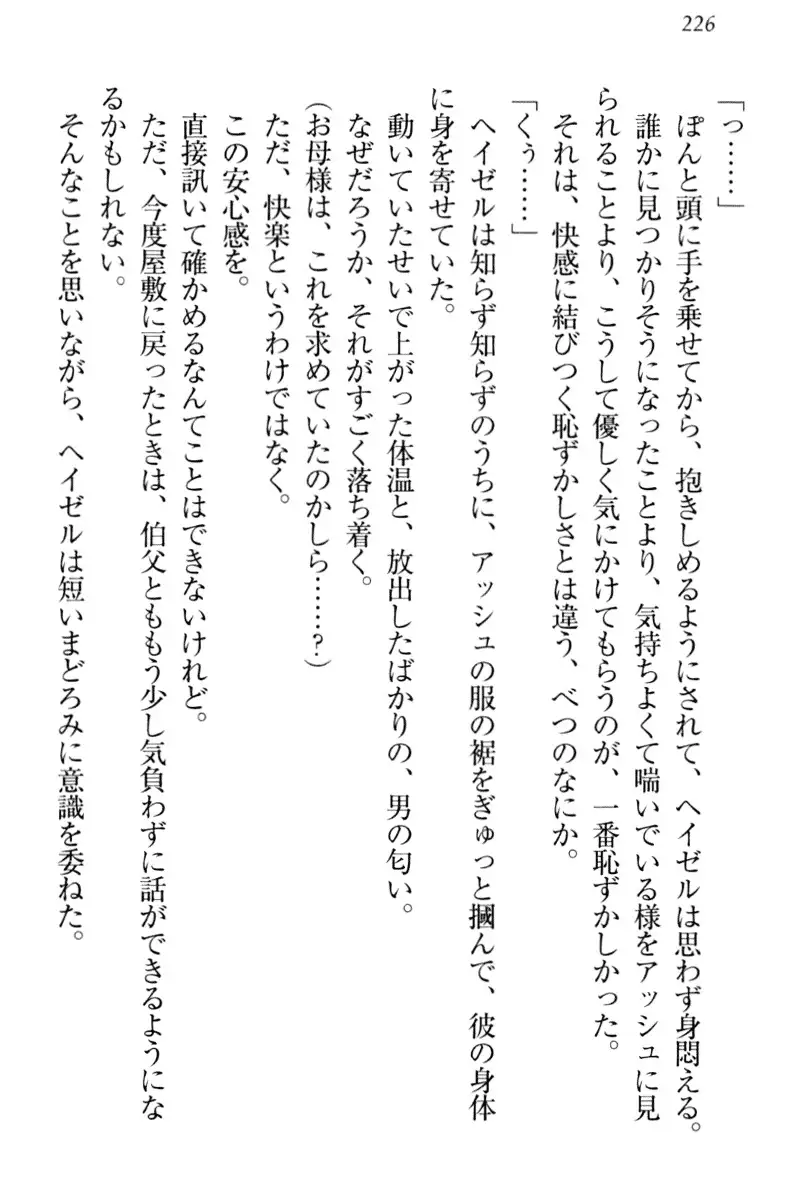 226
「っ……」
　ぽんと頭に手を乗せてから、抱きしめるようにされて、ヘイゼルは思わず身悶える。
　誰かに見つかりそうになったことより、気持ちよくて喘いでいる様をアッシュに見
られることより、こうして優しく気にかけてもらうのが、一番恥ずかしかった。
　それは、快感に結びつく恥ずかしさとは違う、べつのなにか。
「くぅ……」
　ヘイゼルは知らず知らずのうちに、アッシュの服の裾をぎゅっと摑んで、彼の身体
に身を寄せていた。
　動いていたせいで上がった体温と、放出したばかりの、男の匂い。
　なぜだろうか、それがすごく落ち着く。
（お母様は、これを求めていたのかしら……？）
　ただ、快楽というわけではなく。
　この安心感を。
　直接訊いて確かめるなんてことはできないけれど。
　ただ、今度屋敷に戻ったときは、伯父とももう少し気負わずに話ができるようにな
るかもしれない。
　そんなことを思いながら、ヘイゼルは短いまどろみに意識を委ねた。